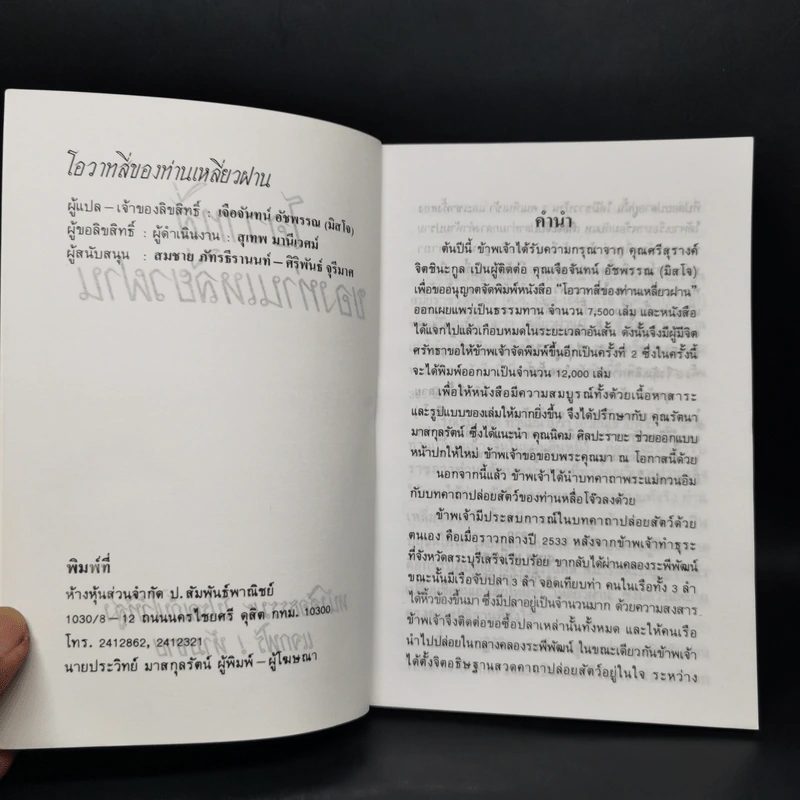 โอวาทสี่ของท่านเหลี่ยวฝาน
ผู้แปล – เจ้าของลิขสิทธิ์ : เจือจันทน์ อัชพรรณ (มิสโจ)
ผู้ขอลิขสิทธิ์ : ผู้ดำเนินงาน : สุเทพ มานีเวศม์
ผู้สนับสนุน : สมชาย ภัทรธีรานนท์ – ศิริพันธ์ จุรีมาศ
พิมพ์ที่
ห้างหุ้นส่วนจำกัด ป. สัมพันธ์พาณิชย์
1030/8 – 12 ถนนนครไชยศรี ดุสิต กทม. 10300
โทร. 2412862, 2412321
นายประวิทย์ มาสกุลรัตน์ ผู้พิมพ์ – ผู้โฆษณา
คำนำ
ต้นปีนี้ ข้าพเจ้าได้รับความกรุณาจาก คุณศรีสุรางค์
จิตชินะกูล เป็นผู้ติดต่อ คุณเจือจันทน์ อัชพรรณ (มิสโจ)
เพื่อขออนุญาตจัดพิมพ์หนังสือ "โอวาทสี่ของท่านเหลี่ยวฝาน"
ออกเผยแพร่เป็นธรรมทาน จำนวน 7,500 เล่ม และหนังสือ
ได้แจกไปแล้วเกือบหมดในระยะเวลาอันสั้น ดังนั้นจึงมีผู้มีจิต
ศรัทธาขอให้ข้าพเจ้าจัดพิมพ์ขึ้นอีกเป็นครั้งที่ 2 ซึ่งในครั้งนี้
จะได้พิมพ์ออกมาเป็นจำนวน 12,000 เล่ม
เพื่อให้หนังสือมีความสมบูรณ์ทั้งด้วยเนื้อหาสาระ
และรูปแบบของเล่มให้มากยิ่งขึ้น จึงได้ปรึกษากับ คุณรัตนา
มาสกุลรัตน์ ซึ่งได้แนะนำ คุณนิคม ศิลปะรายะ ช่วยออกแบบ
หน้าปกให้ใหม่ ข้าพเจ้าขอขอบพระคุณมา ณ โอกาสนี้ด้วย
นอกจากนี้แล้ว ข้าพเจ้าได้นำบทคาถาพระแม่กวนอิม
กับบทคาถาปล่อยสัตว์ของท่านหลื่อโจ๊วลงด้วย
ข้าพเจ้ามีประสบการณ์ในบทคาถาปล่อยสัตว์ด้วย
ตนเอง คือเมื่อราวกลางปี 2533 หลังจากข้าพเจ้าทำธุระ
ที่จังหวัดสระบุรีเสร็จเรียบร้อย ขากลับได้ผ่านคลองระพีพัฒน์
ขณะนั้นมีเรือจับปลา 3 ลำ จอดเทียบท่า คนในเรือทั้ง 3 ลำ
ได้หิ้วข้องขึ้นมา ซึ่งมีปลาอยู่เป็นจำนวนมาก ด้วยความสงสาร
ข้าพเจ้าจึงติดต่อขอซื้อปลาเหล่านั้นทั้งหมด และให้คนเรือ
นำไปปล่อยในกลางคลองระพีพัฒน์ ในขณะเดียวกันข้าพเจ้า
ได้ตั้งจิตอธิษฐานสวดคาถาปล่อยสัตว์อยู่ในใจ ระหว่าง